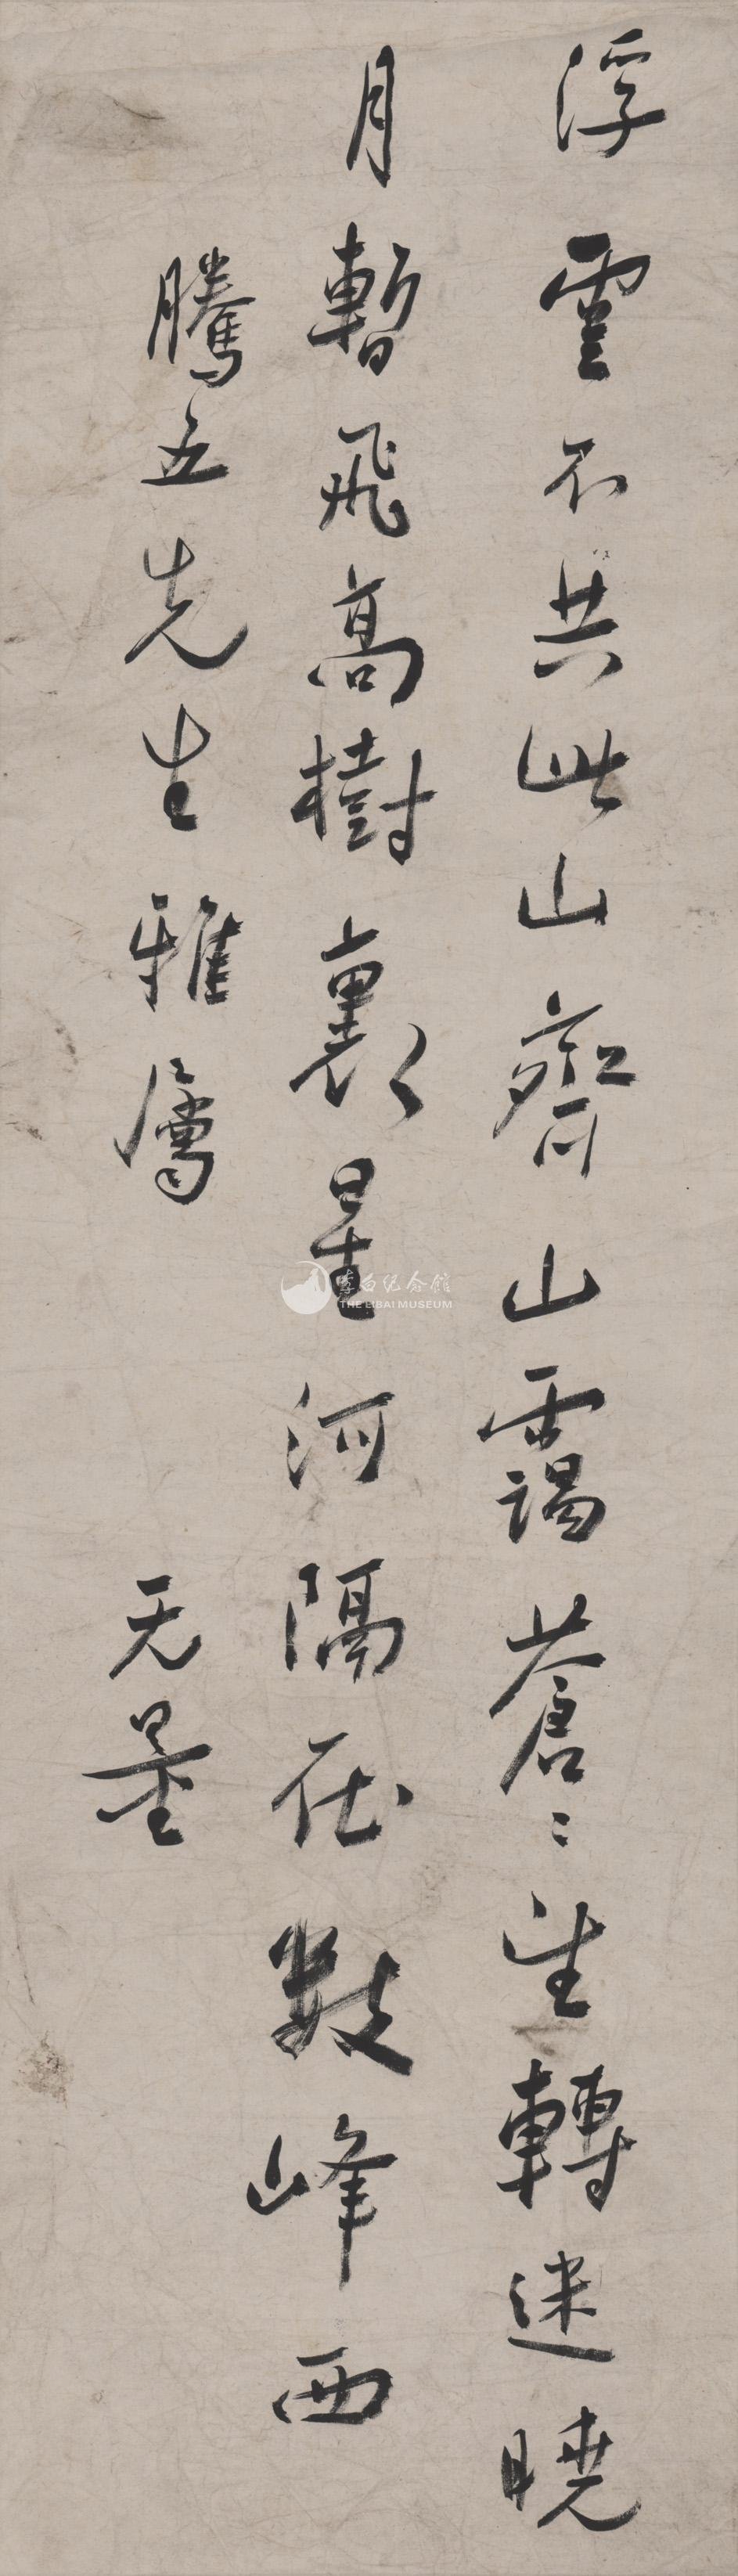 浮雲不共此山齊山靄蒼〻望轉迷曉
月暫飛高樹裏星河隔在數峰西
騰五先生雅屬
无量
李白纪念馆
THE LIBAI MUSEUM